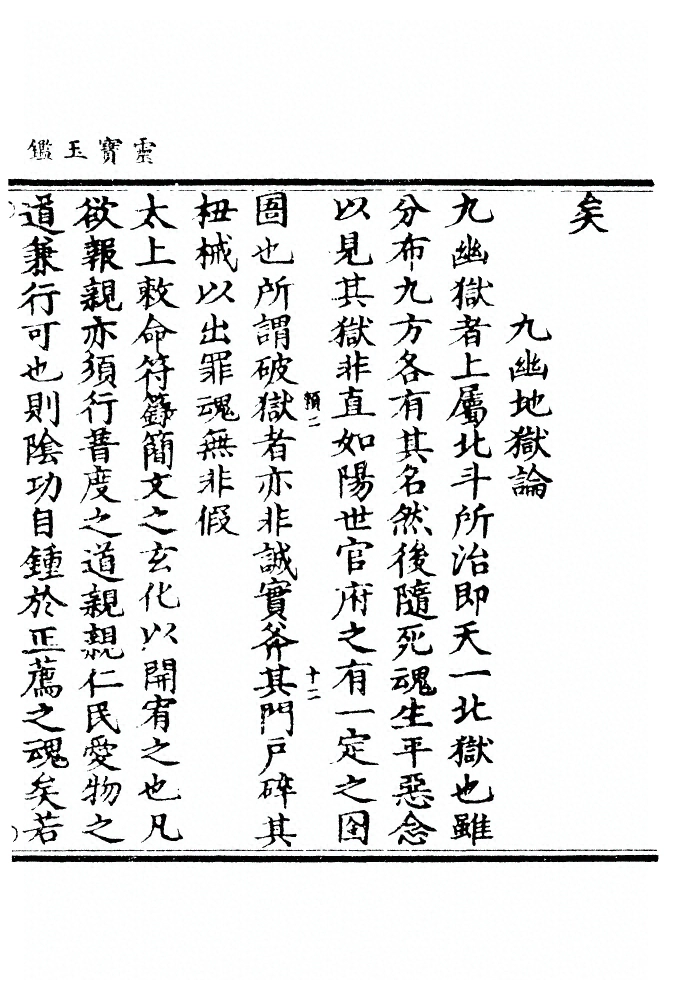 靈寶玉鑑
矣
九幽地獄論
九幽獄者上屬北斗所治即天一北獄也雖
分布九方各有其名然後隨死魂生平惡念
以見其獄非直如陽世官府之有一定之囹
圄也所謂破獄者亦非誠實斧其門戶碎其
類二
十二
杻械以出罪魂無非假
太上敕命符籙簡文之玄化以開宥之也凡
欲報親亦須行普度之道親親仁民愛物之
道兼行可也則陰功自鍾於正薦之魂矣若